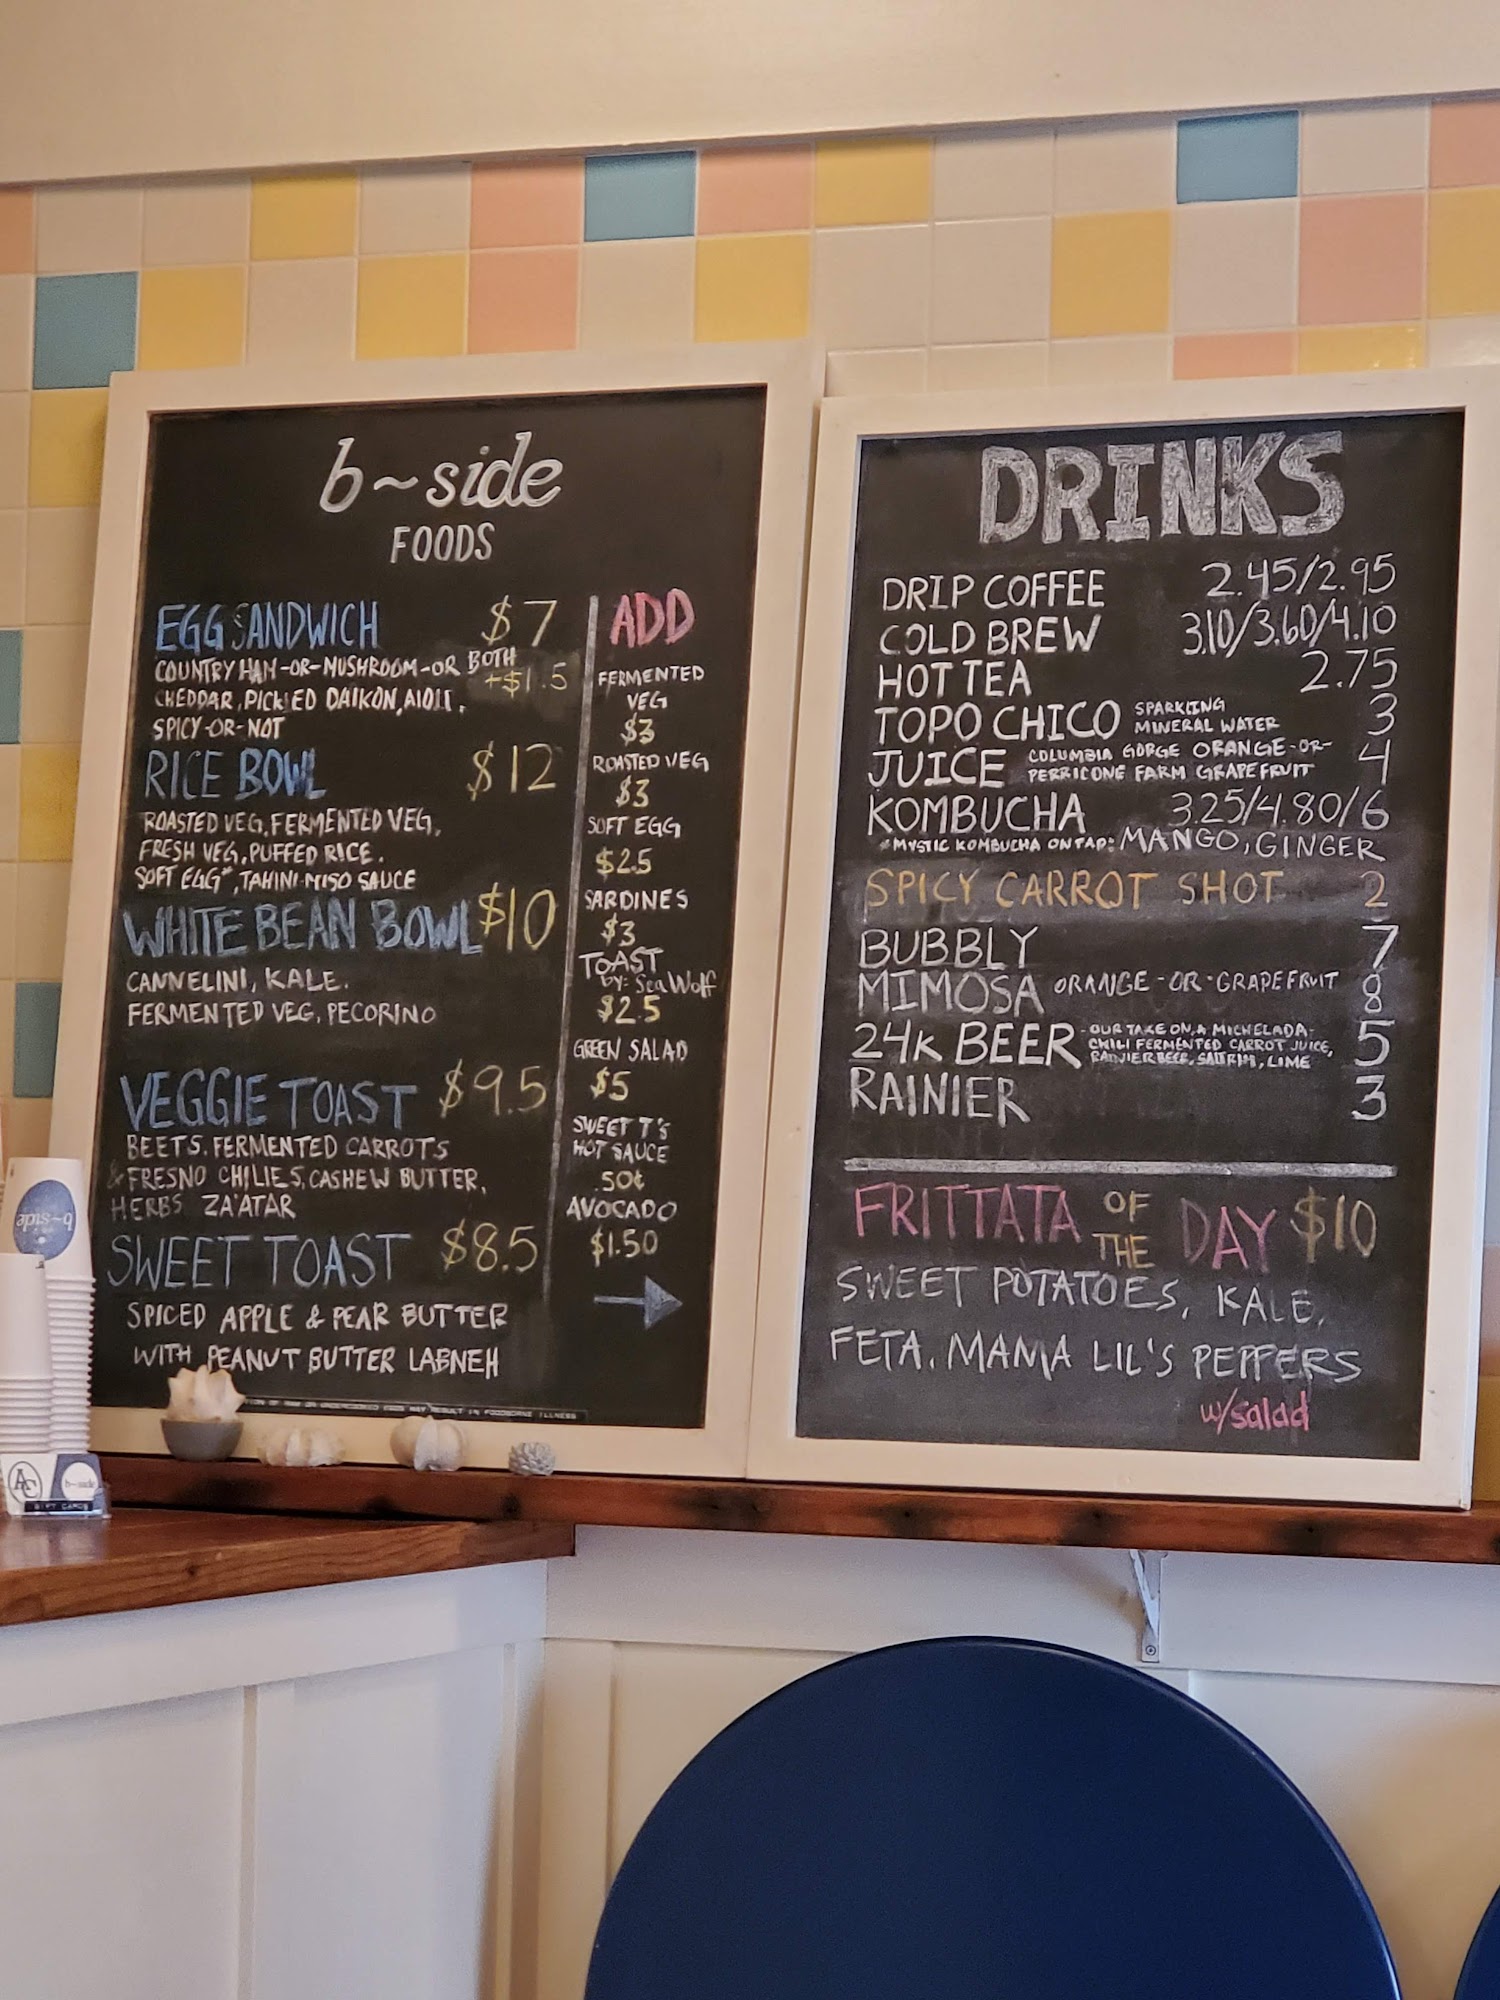 b~side
FOODS
EGG SANDWICH $7
COUNTRY HAM-OR-MUSHROOM-OR BOTH +$1.5
CHEDDAR, PICKLED DAIKON, AIOLI,
SPICY-OR-NOT
RICE BOWL $12
ROASTED VEG, FERMENTED VEG,
FRESH VEG, PUFFED RICE.
SOFT EGG*, TAHINI-MISO SAUCE
WHITE BEAN BOWL $10
CANNELINI, KALE.
FERMENTED VEG, PECORINO
VEGGIE TOAST $9.5
BEETS, FERMENTED CARROTS
& FRESNO CHILIES, CASHEW BUTTER,
HERBS ZA'ATAR
SWEET TOAST $8.5
SPICED APPLE & PEAR BUTTER
WITH PEANUT BUTTER LABNEH
MAY RESULT IN FOODBORNE ILLNESS
ADD
FERMENTED
VEG
$3
ROASTED VEG
$3
SOFT EGG
$2.5
SARDINES
$3
TOAST
by: Sea Wolf
$2.5
GREEN SALAD
$5
SWEET T'S
HOT SAUCE
.50¢
AVOCADO
$1.50
DRINKS
DRIP COFFEE 2.45/2.95
COLD BREW 3.10/3.60/4.10
HOT TEA 2.75
TOPO CHICO SPARKLING MINERAL WATER 3
JUICE COLUMBIA GORGE ORANGE-OR- PERRICONE FARM GRAPEFRUIT 4
KOMBUCHA 3.25/4.80/6
*MYSTIC KOMBUCHA ON TAP: MANGO, GINGER
SPICY CARROT SHOT 2
BUBBLY 7
MIMOSA ORANGE-OR-GRAPEFRUIT 8
24K BEER -OUR TAKE ON A MICHELADA- CHILI FERMENTED CARROT JUICE, RAINIER BEER, SALT RIM, LIME 5
RAINIER 3
FRITTATA OF THE DAY $10
SWEET POTATOES, KALE,
FETA, MAMA LIL'S PEPPERS
w/salad
b~side
AC
b~side
GIFT CARDS